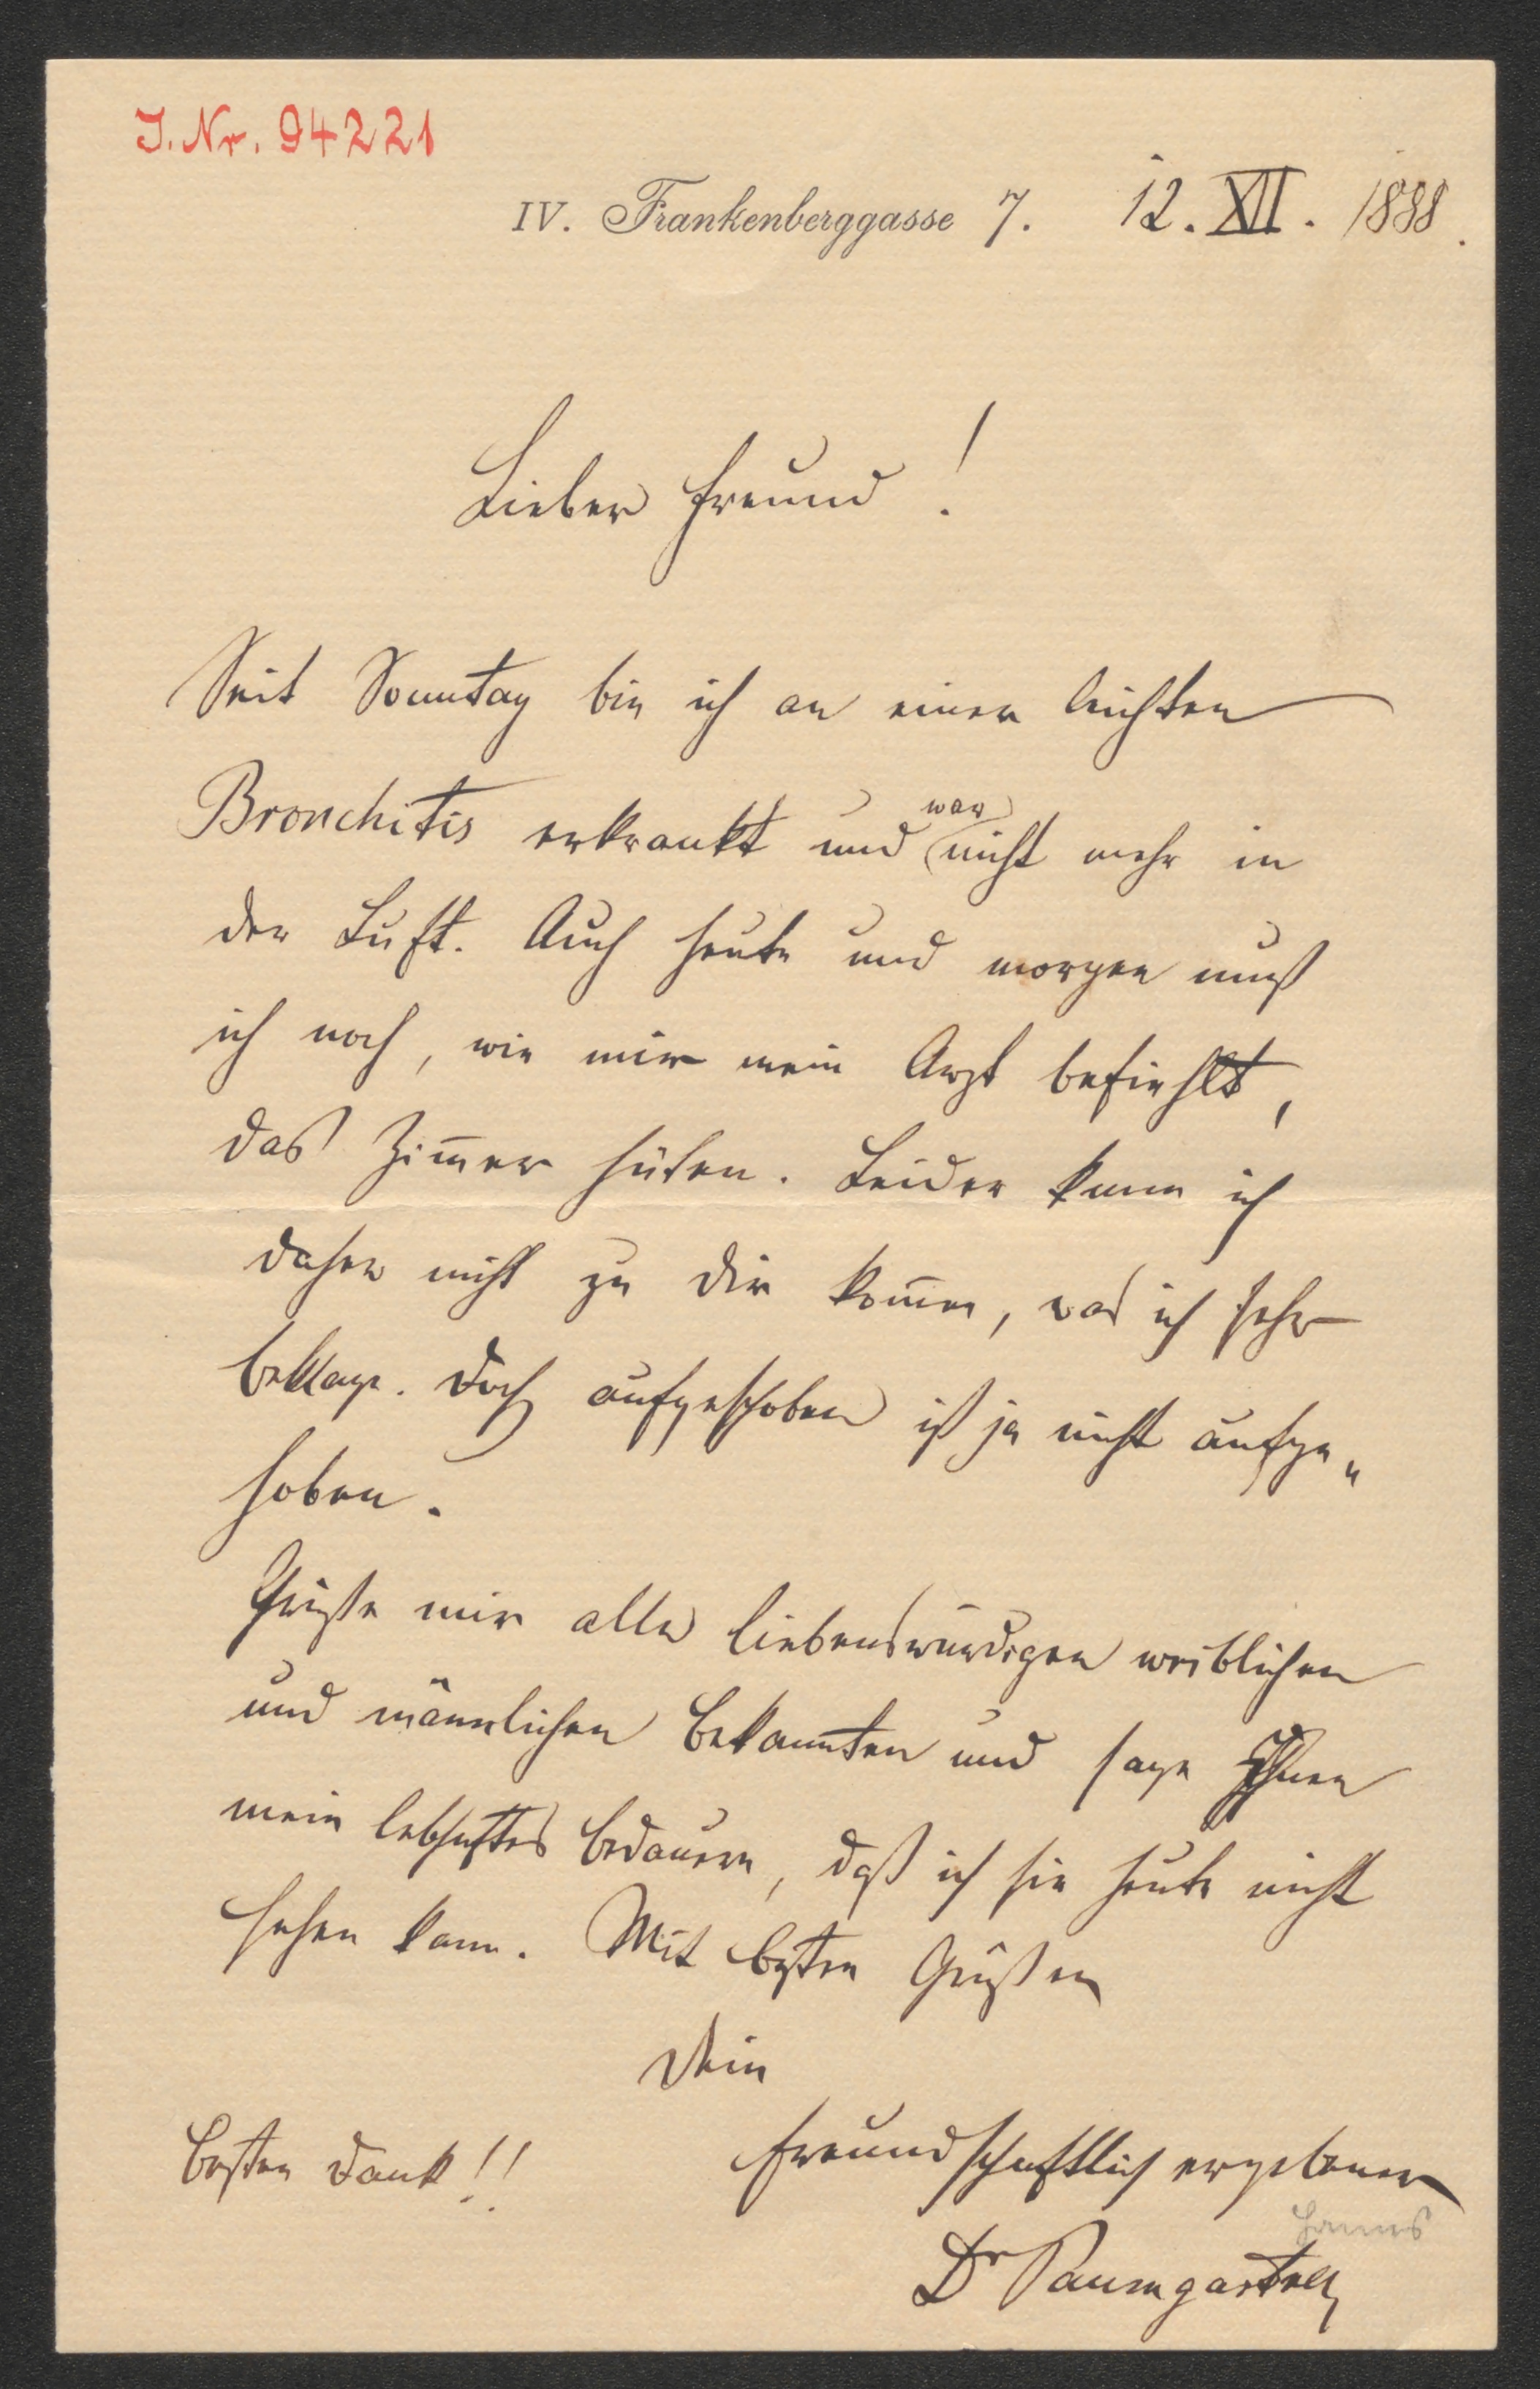 J. Nr. 94221
IV. Frankenberggasse 7. 12. XII. 1888.
Lieber Freund!
Seit Sonntag bin ich an einer leichten
Bronchitis erkrankt und war nicht mehr in
der Luft. Auch heute und morgen muß
ich noch, wie mir mein Arzt befiehlt,
das Zim̅er hüten. Leider kann ich
daher nicht zu Dir kom̅en, was ich sehr
beklage. Doch aufgeschoben ist ja nicht aufge„
hoben.
Grüße mir alle liebenswürdigen weiblichen
und männlichen Bekannten und sage Ihnen
mein lebhaftes Bedauern, daß ich sie heute nicht
sehen kann. Mit besten Grüßen
Dein
freundschaftlich ergebener
Besten Dank!!
Hanns
Dr Paumgartner